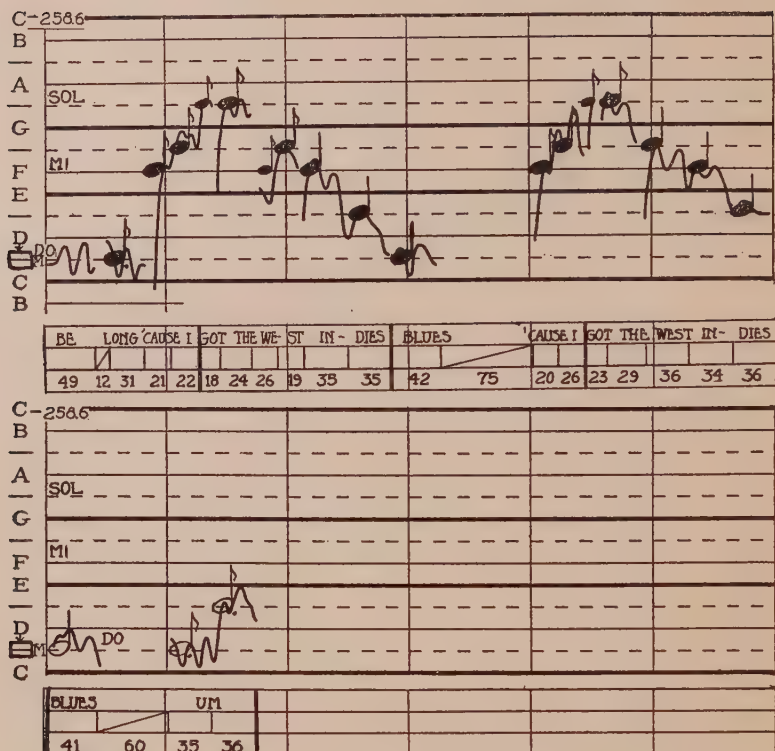 C-258.6
B
A
SOL
G
F MI
E
D
DO
M
C
B
BE LONG 'CAUSE I GOT THE WE- ST IN- DIES BLUES 'CAUSE I GOT THE WEST IN- DIES
49 12 31 21 22 18 24 26 19 35 35 42 75 20 26 23 29 36 34 36
C-258.6
B
A
SOL
G
MI
F
E
D
M DO
C
BLUES UM
41 60 35 36